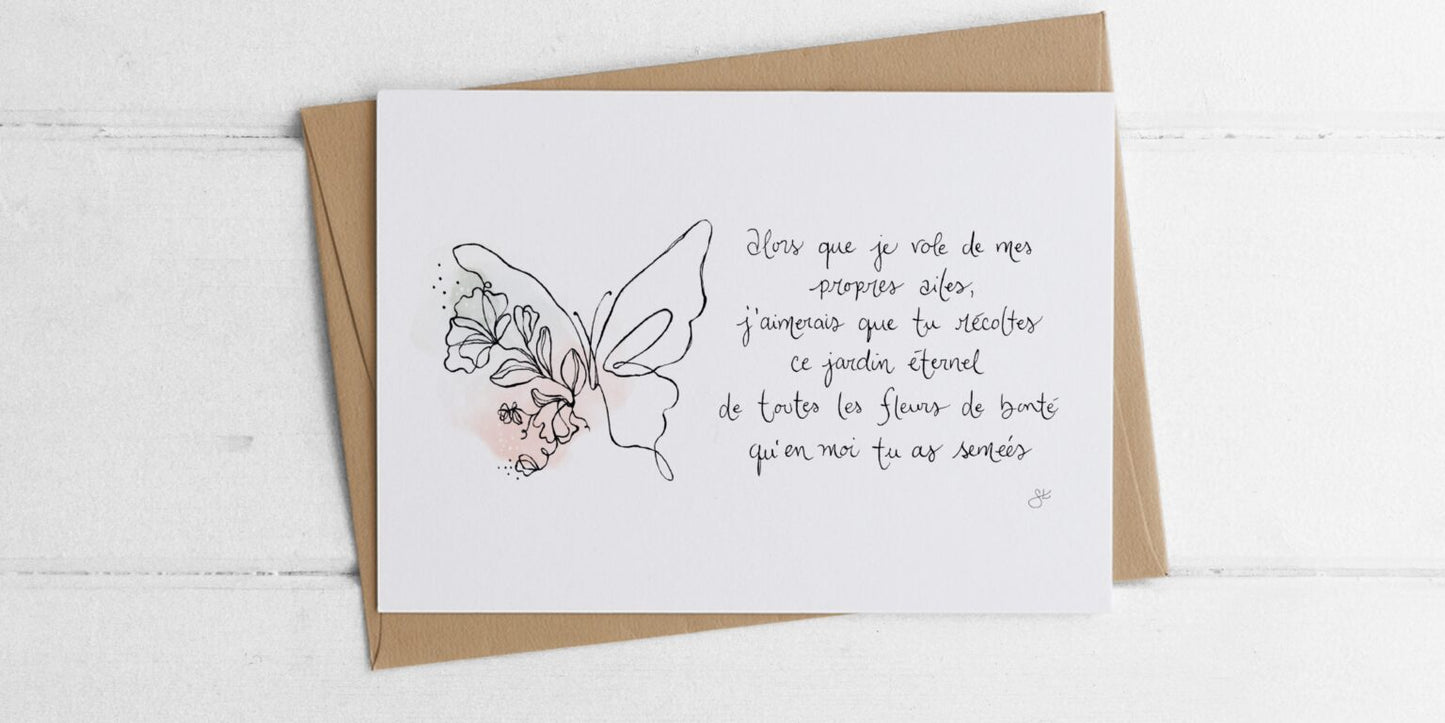 Alors que je vole de mes
propres ailes,
j'aimerais que tu récoltes
ce jardin éternel
de toutes les fleurs de bonté
qu'en moi tu as semées